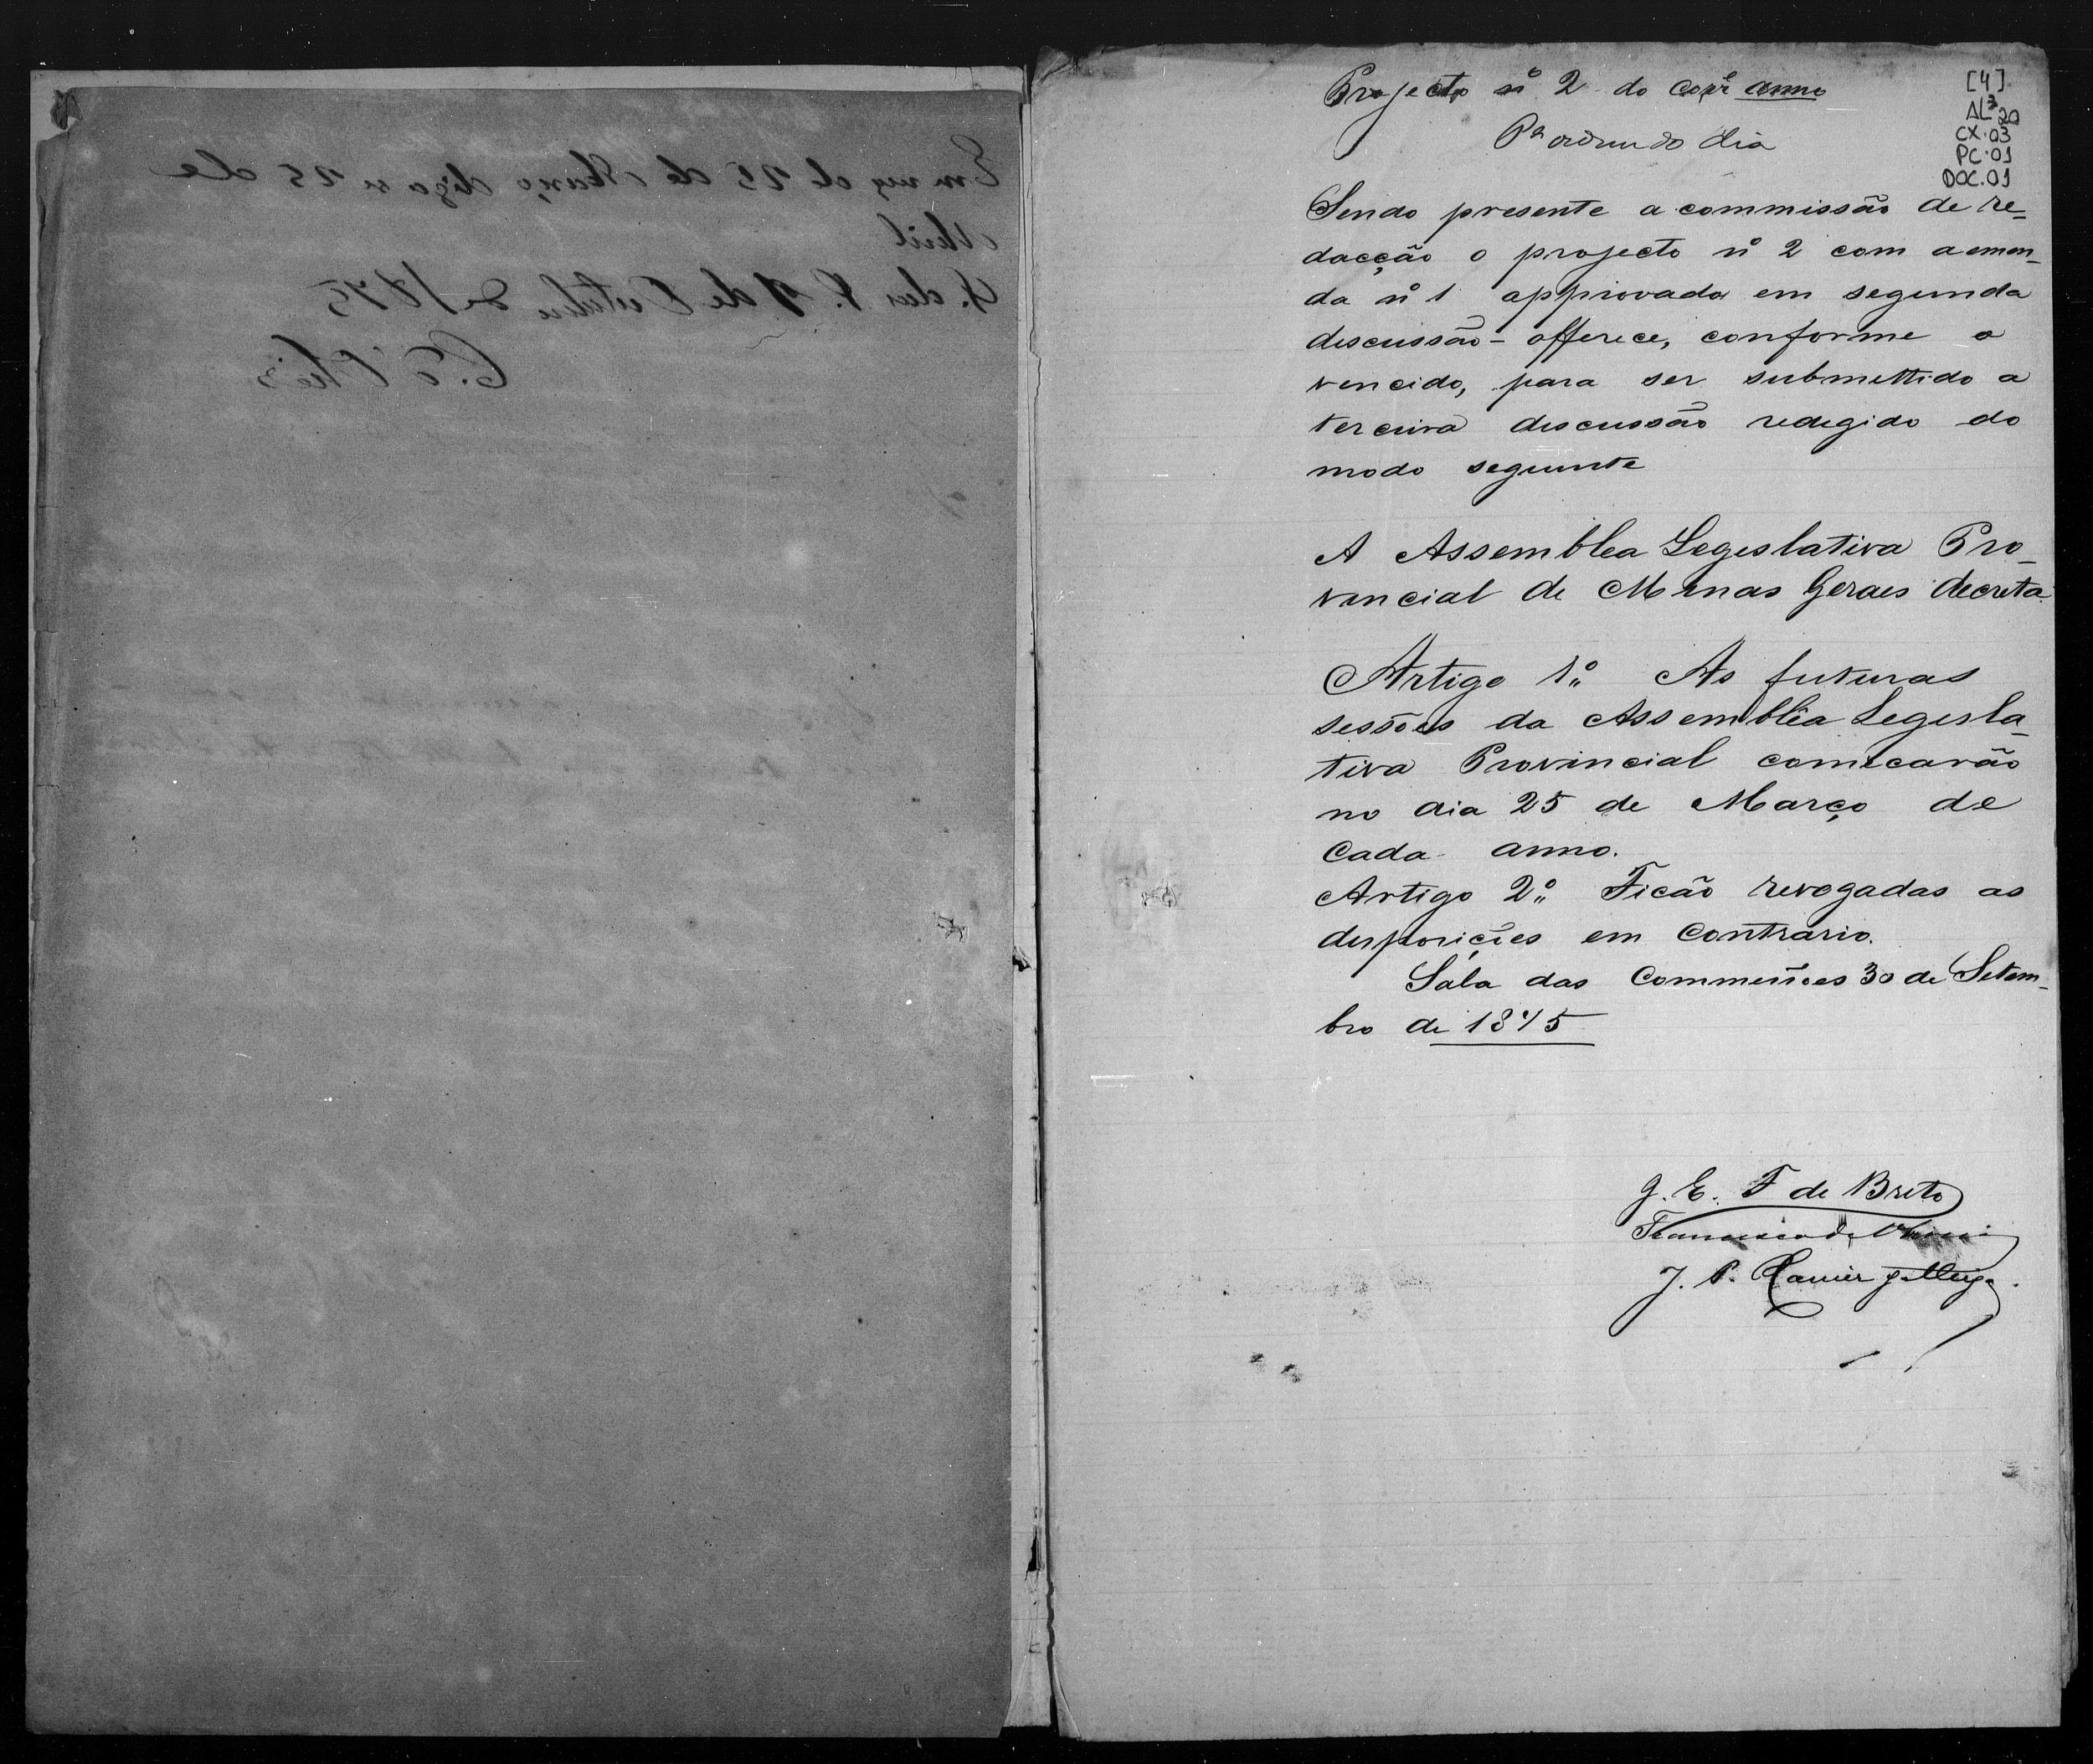 Em vez de 25 de Março diga-se 25 de
Abril
de 1875
Projecto nº 2 do corre anno
Pª ordem do dia
[4]
AL³20
CX.03
PC.01
DOC.01
Sendo presente a commissão de re-
dacção o projecto nº 2 com a emen-
da nº 1 approvada em segunda
discussão - offerece, conforme o
vencido, para ser submettido a
terceira discussão redegido do
modo seguinte
A Assemblea Legeslativa Pro-
vincial de Minas Geraes decreta
Artigo 1º As futuras
sessões da Assemblêa Legisla-
tiva Provincial comecarão
no dia 25 de Março de
Cada anno.
Artigo 2º Ficão revogadas as
desposições em contrario.
Sala das Commissões 30 de Setem-
bro de 1875
J. E. F de Brito
Francisco de
J. P. Xavier da Veiga.